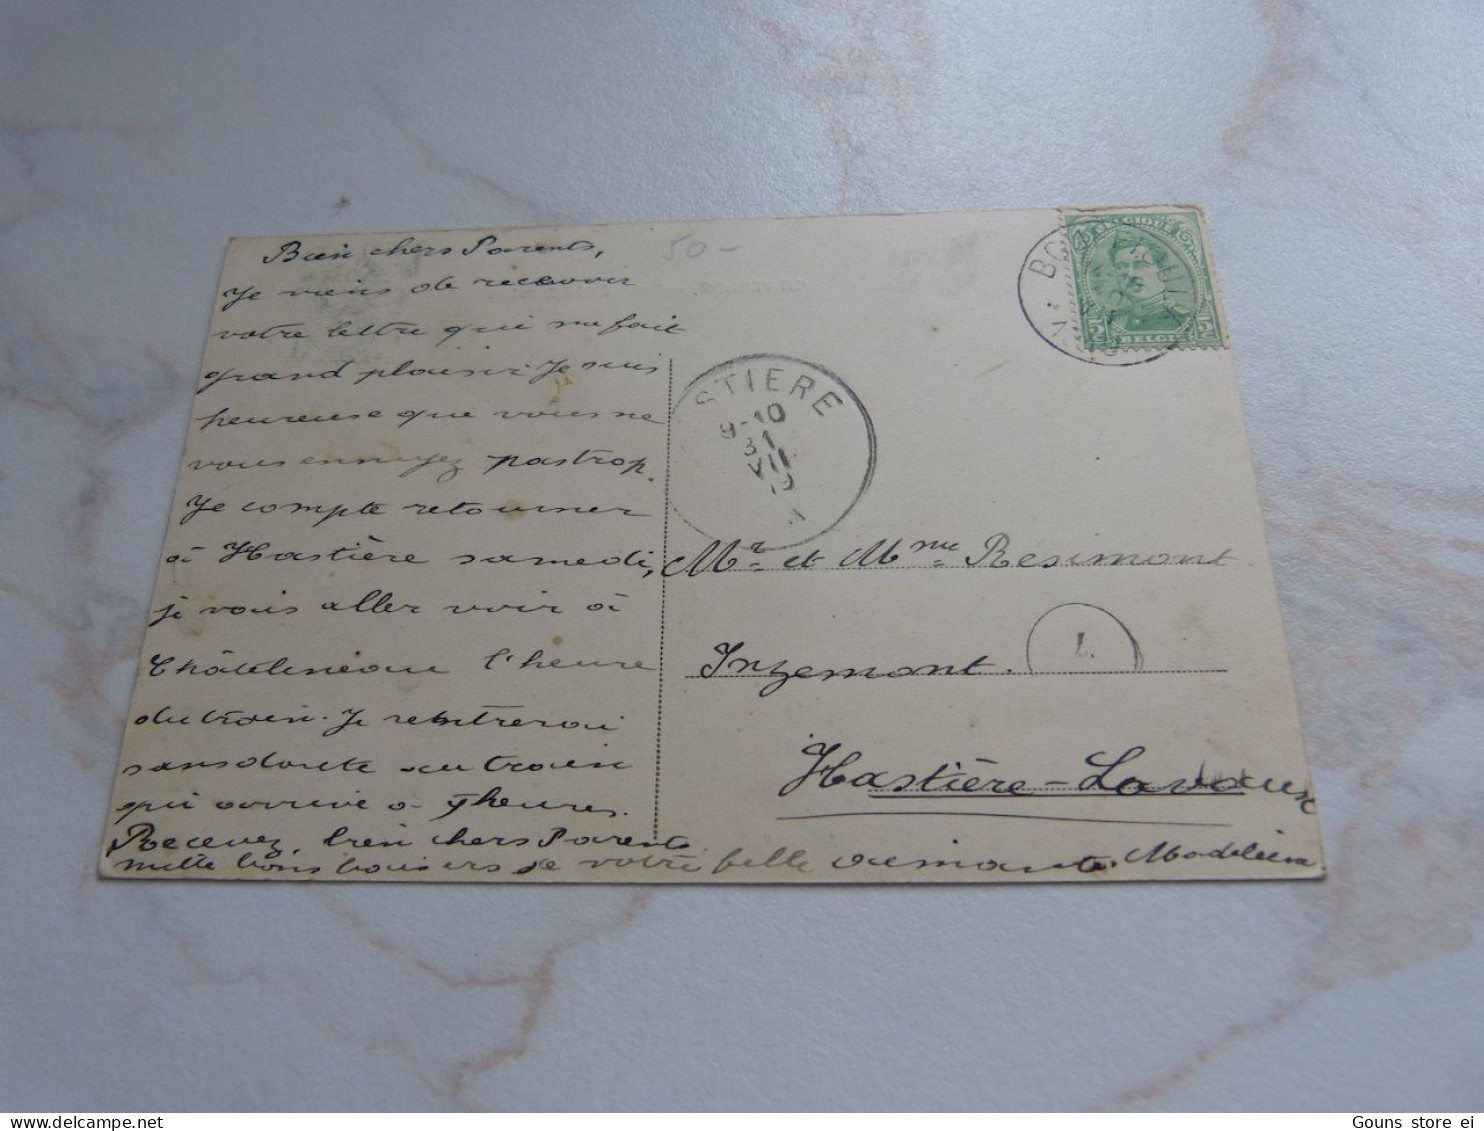 Bien chers Parents,
Je viens de recevoir
votre lettre qui me fait
grand plaisir. Je suis
heureuse que vous ne
vous ennuyez pas trop.
Je compte retourner
à Hastière samedi,
je vais aller voir à
Châtelineau l'heure
du train. Je rentrerai
sans doute au train
qui arrive à 9 heures.
Recevez, bien chers Parents
mille bons baisers de votre fille aimante. Madeleine
50-
STIÈRE
9-10
31
VII
BELGIQUE
5
5
BELGIË
Mr et Mme Résimont
Inzemont.
Hastière-Lavaux
Gouns store ei